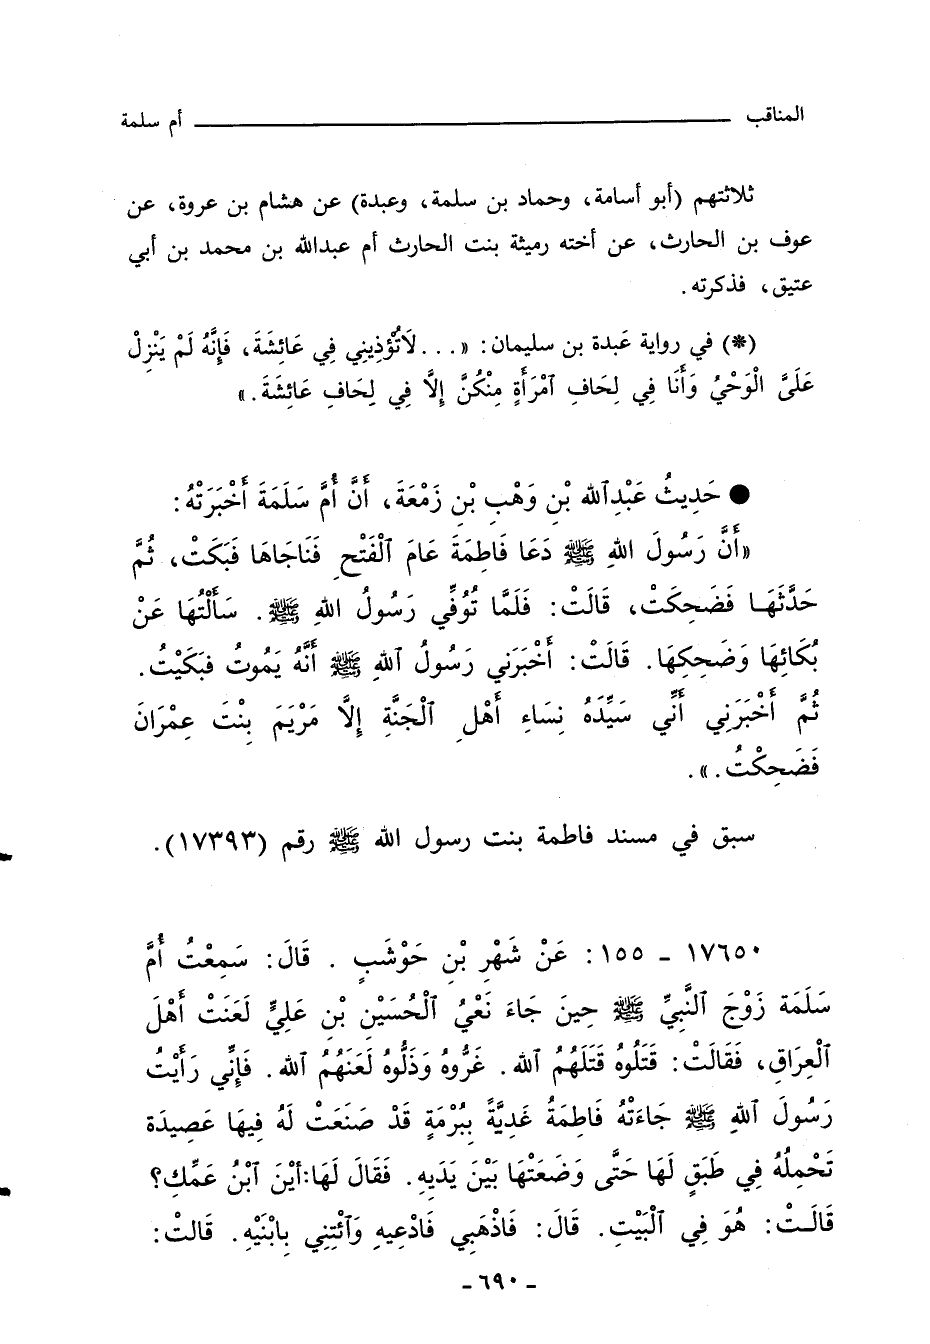 المناقب ــــــــــــ أم سلمة
ثلاثتهم (أبو أسامة، وحماد بن سلمة، وعبدة) عن هشام بن عروة، عن
عوف بن الحارث، عن أخته رميثة بنت الحارث أم عبدالله بن محمد بن أبي
عتيق، فذكرته.
(*) في رواية عَبدة بن سليمان: «... لَاتُؤْذِينِي فِي عَائِشَةَ، فَإِنَّهُ لَمْ يَنْزِلْ
عَلَيَّ الْوَحْيُ وَأَنَا فِي لِحَافِ ٱمْرَأَةٍ مِنْكُنَّ إِلَّا فِي لِحَافِ عَائِشَةَ.»
● حَدِيثُ عَبْدِاللهِ بْنِ وَهْبِ بْنِ زَمْعَةَ، أَنَّ أُمَّ سَلَمَةَ أَخْبَرَتْهُ:
«أَنَّ رَسُولَ اللهِ ﷺ دَعَا فَاطِمَةَ عَامَ ٱلْفَتْحِ فَنَاجَاهَا فَبَكَتْ، ثُمَّ
حَدَّثَهَا فَضَحِكَتْ، قَالَتْ: فَلَمَّا تُوُفِّي رَسُولُ اللهِ ﷺ. سَأَلْتُهَا عَنْ
بُكَائِهَا وَضَحِكِهَا. قَالَتْ: أَخْبَرَنِي رَسُولُ ٱللهِ ﷺ أَنَّهُ يَمُوتُ فبَكَيْتُ.
ثُمَّ أَخْبَرَنِي أَنِّي سَيِّدَهُ نِسَاءِ أَهْلِ ٱلْجَنَّةِ إِلَّا مَرْيَمَ بِنْتَ عِمْرَانَ
فَضَحِكْتُ.».
سبق في مسند فاطمة بنت رسول الله ﷺ رقم (١٧٣٩٣).
١٧٦٥٠ ـ ١٥٥: عَنْ شَهْرِ بْنِ حَوْشَبٍ . قَالَ: سَمِعْتُ أُمَّ
سَلَمَة زَوْجَ ٱلنَّبِيِّ ﷺ حِينَ جَاءَ نَعْيُ ٱلْحُسَيْنِ بْنِ عَلِيٍّ لَعَنَتْ أَهْلَ
ٱلْعِرَاقِ، فَقَالَتْ: قَتَلُوهُ قَتَلَهُمُ ٱلله. غَرُّوهُ وَذَلُّوهُ لَعَنَهُمُ ٱلله. فَإِنِّي رَأَيْتُ
رَسُولَ ٱللهِ ﷺ جَاءَتْهُ فَاطِمَةُ غَدِيَّةً بِبُرْمَةٍ قَدْ صَنَعَتْ لَهُ فِيهَا عَصِيدَة
تَحْمِلُهُ فِي طَبَقٍ لَهَا حَتَّى وَضَعَتْهَا بَيْنَ يَدَيهِ. فَقَالَ لَهَا:أَيْنَ ٱبْنُ عَمِّكِ؟
قَالَتْ: هُوَ فِي ٱلْبَيْتِ. قَالَ: فَاذْهَبِي فَادْعِيهِ وَٱئْتِنِي بِابْنَيْهِ. قَالتْ:
ـ ٦٩٠ ـ